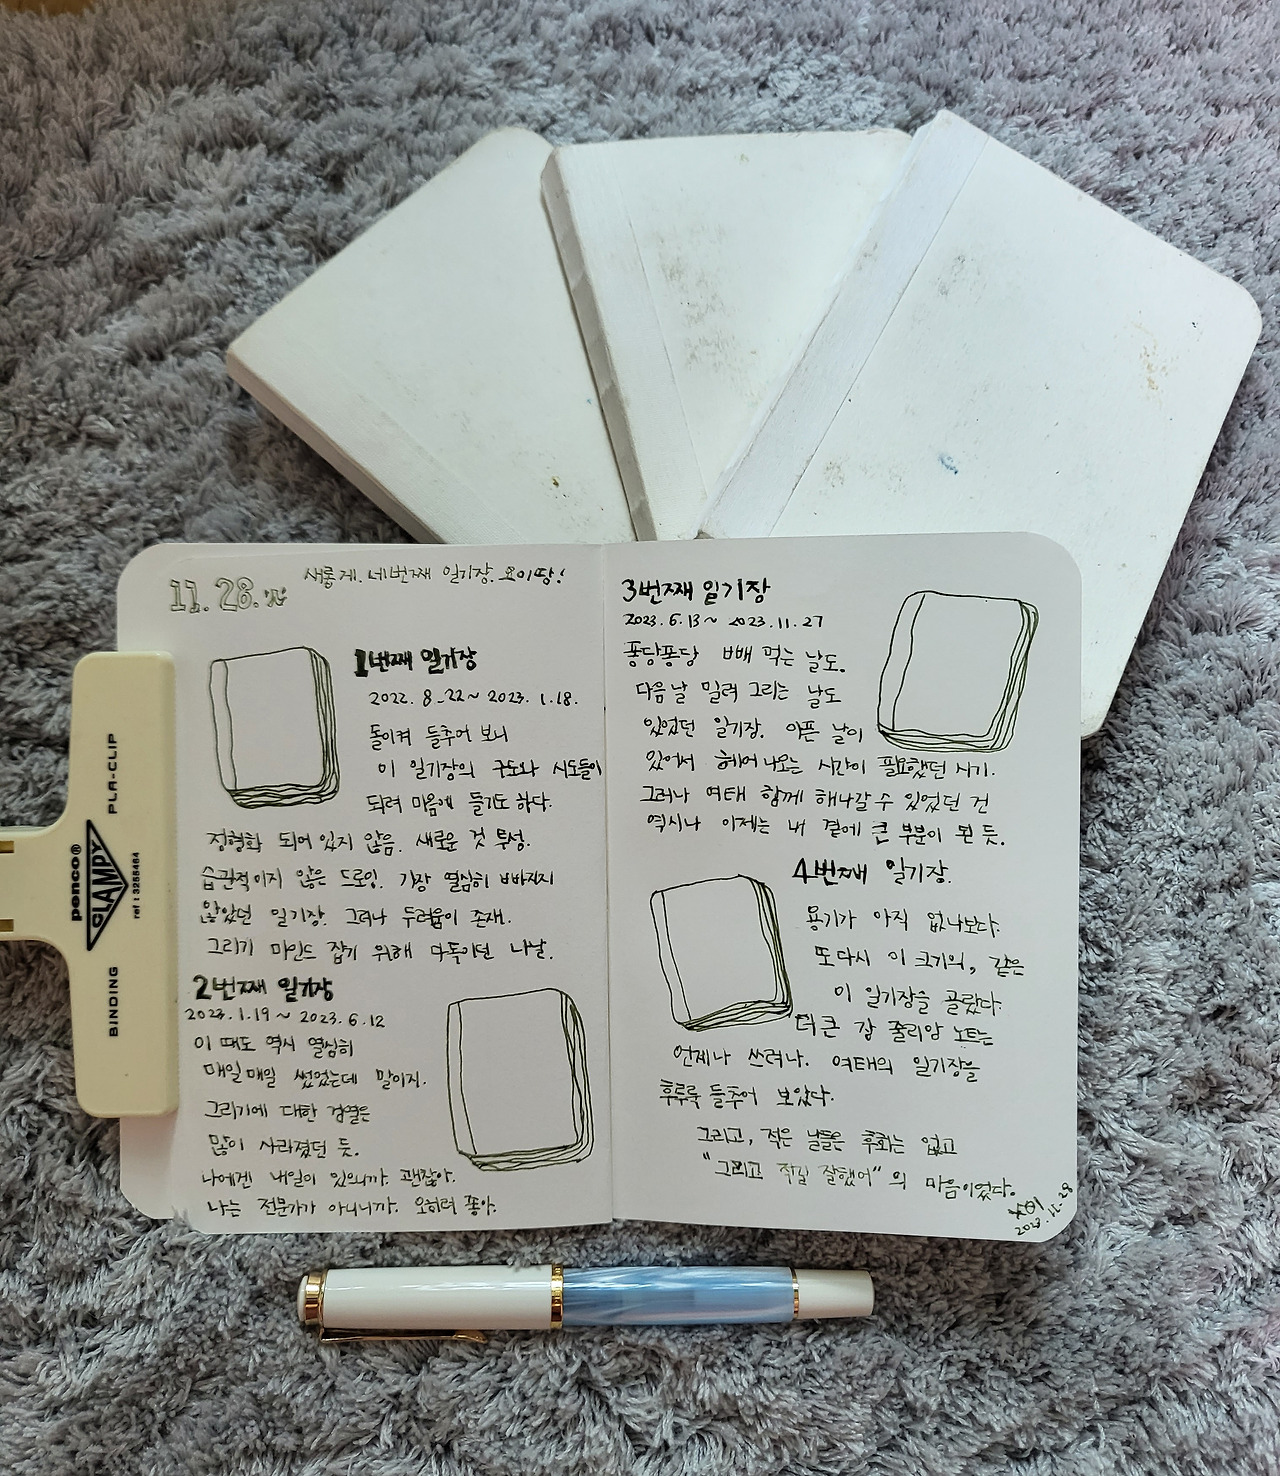 11.28.火
새롭게. 네번째 일기장. 요이땅!
1번째 일기장
2022. 8. 22 ~ 2023. 1. 18.
돌이켜 들추어 보니
이 일기장의 구도와 시도들이
되려 마음에 들기도 하다.
정형화 되어 있지 않음. 새로운 것 투성.
습관적이지 않은 드로잉. 가장 열심히 빠짐지
않았던 일기장. 그러나 두려움이 존재.
그리기 마인드 잡기 위해 다독이던 나날.
2번째 일기장
2023. 1. 19 ~ 2023. 6. 12
이 때도 역시 열심히
매일매일 썼었는데 말이지.
그리기에 대한 검열은
많이 사라졌던 듯.
나에겐 내일이 있으니까. 괜찮아.
나는 전문가가 아니니까. 오히려 좋아.
3번째 일기장
2023. 6. 13 ~ 2023. 11. 27
퐁당퐁당 빼 먹는 날도.
다음날 밀려 그리는 날도
있었던 일기장. 아픈 날이
있어서 헤어나오는 시간이 필요했던 시기.
그러나 여태 함께 해나갈 수 있었던 건
역시나 이제는 내 곁에 큰 부분이 된 듯.
4번째 일기장.
용기가 아직 없나보다.
또다시 이 크기의, 같은
이 일기장을 골랐다.
더 큰 감 줄리앙 노트는
언제나 쓰려나. 여태의 일기장을
후루룩 들추어 보았다.
그리고, 적은 날들은 후회는 없고
"그리고 적길 잘했어" 의 마음이었다.
2023. 11. 28
penco®
CLAMPY
ref : 3255464
PLA-CLIP
BINDING